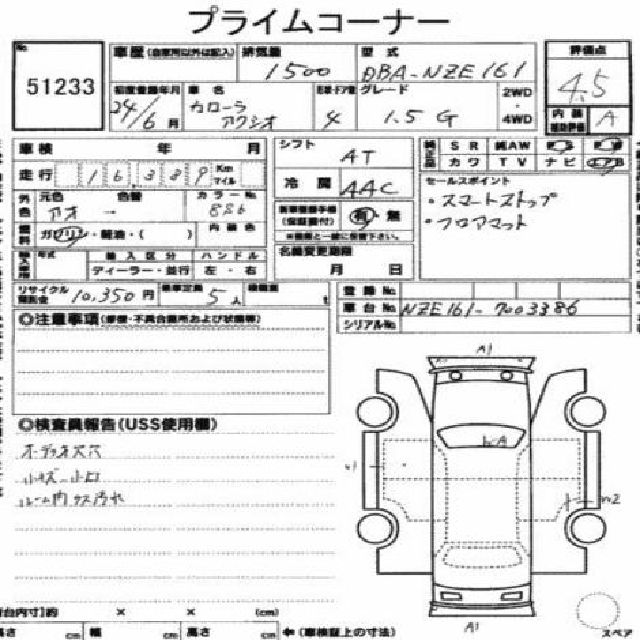 プライムコーナー
No. 51233
車歴 (自家用以外は記入) 排気量 1500 型式 DBA-NZE161
評価点 4.5
初度登録年月 24/6月 車名 カローラ アクシオ 4 グレード 1.5 G 2WD 4WD
内装 A
車検 年 月 シフト AT
SR 純AW
カワ TV ナビ
走行 16,389 Km マイル
冷房 AAC
セールスポイント
・スマートストップ
・フロアマット
外色 元色 アオ 色替 ー カラーNo. 8S6 内装色
燃料 ガソリン・軽油・( )
有・無
(保証書付)
名義変更期限 月 日
輸入車用 年式 輸入区分 ハンドル
ディーラー・並行 左・右
リサイクル預託金 10,350円 乗車定員 5人 積載量 t
登録No.
車台No. NZE161-7003386
シリアルNo.
◎注意事項(修復・不具合箇所および状態等)
◎検査員報告(USS使用欄)
オーディオ穴穴
小キズ 小凹
ルーム内ウス汚れ
A1
A1
(cm)
高さ cm 幅 cm 高さ cm ←(車検証上の寸法)